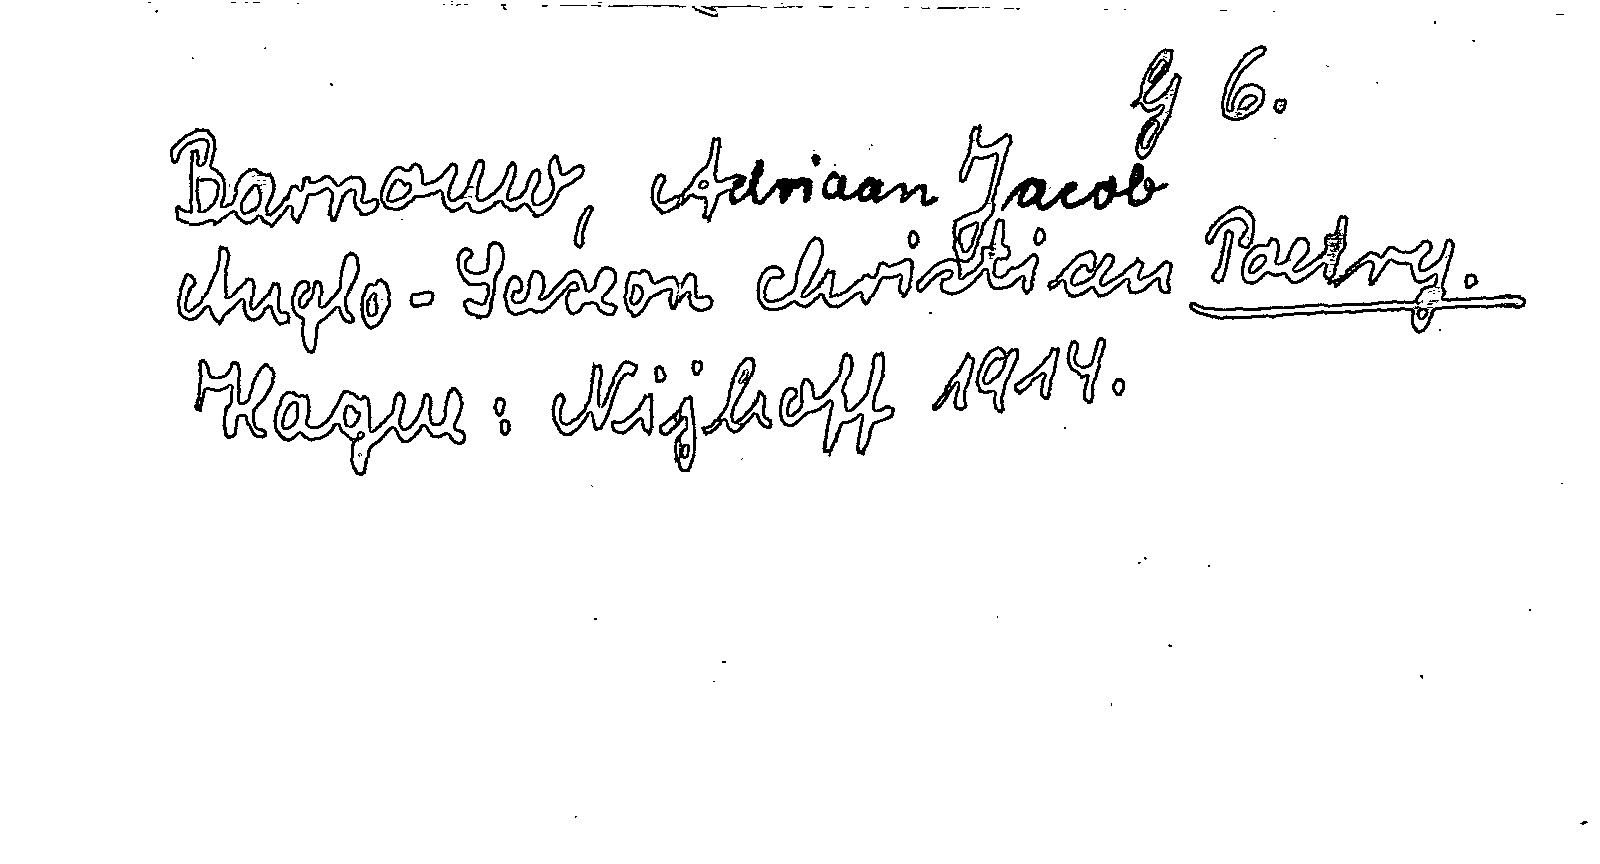 G 6.
Barnouw, Adriaan Jacob
Anglo-Saxon christian Poetry.
Haque: Nijhoff 1914.